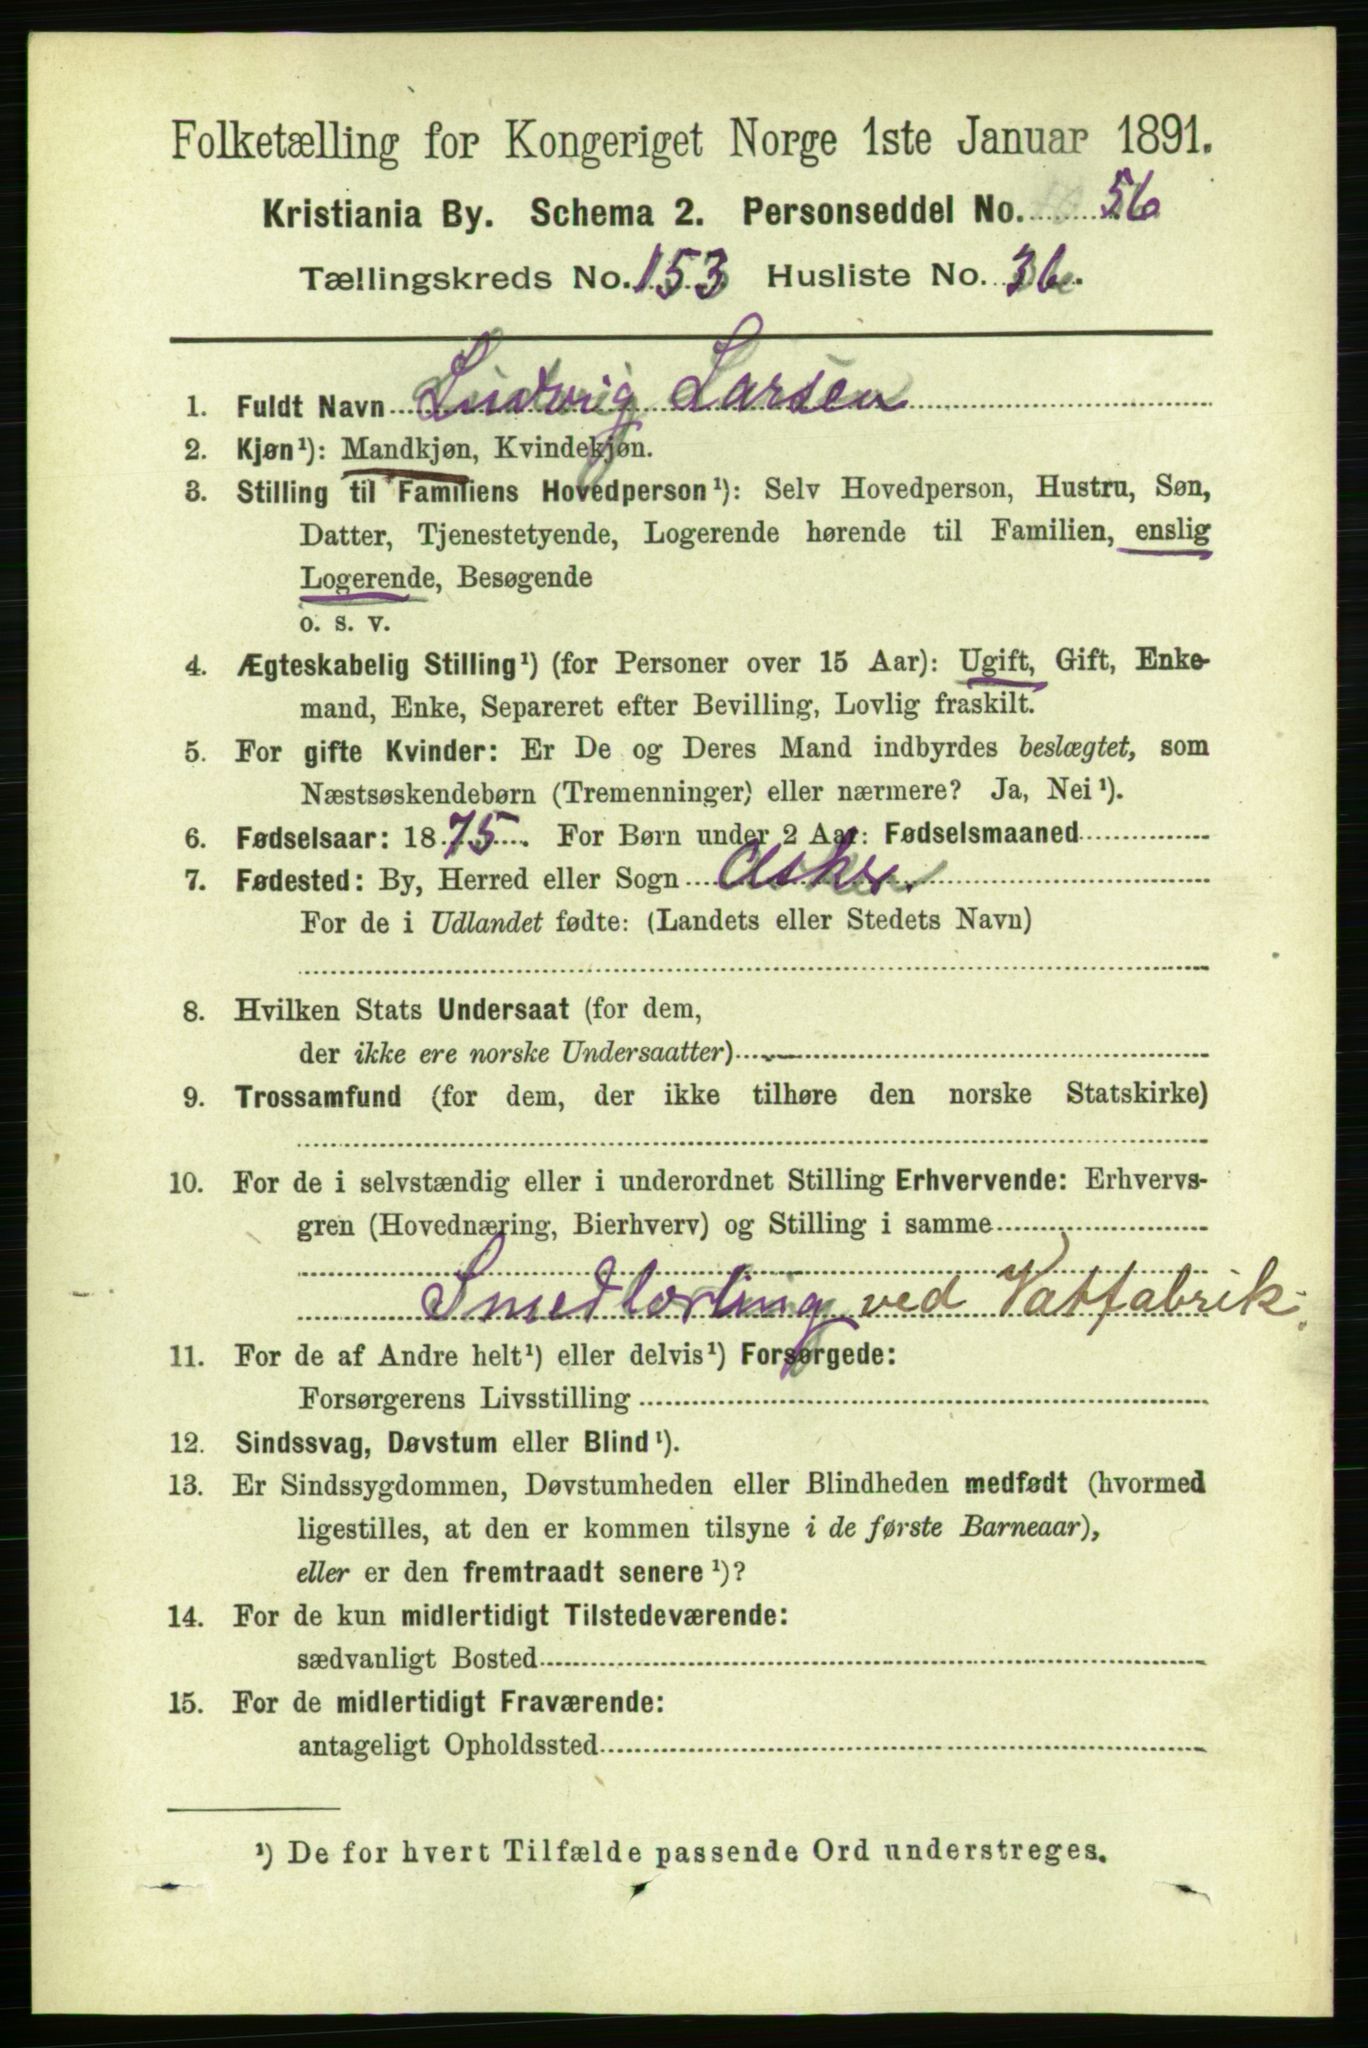 Folketælling for Kongeriget Norge 1ste Januar 1891.
Kristiania By. Schema 2. Personseddel No. 56
Tællingskreds No. 153 Husliste No. 36.
1. Fuldt Navn Ludvig Larsen
2. Kjøn¹): Mandkjøn, Kvindekjøn.
3. Stilling til Familiens Hovedperson¹): Selv Hovedperson, Hustru, Søn,
Datter, Tjenestetyende, Logerende hørende til Familien, enslig
Logerende, Besøgende
o. s. v.
4. Ægteskabelig Stilling¹) (for Personer over 15 Aar): Ugift, Gift, Enke-
mand, Enke, Separeret efter Bevilling, Lovlig fraskilt.
5. For gifte Kvinder: Er De og Deres Mand indbyrdes beslægtet, som
Næstsøskendebørn (Tremenninger) eller nærmere? Ja, Nei¹).
6. Fødselsaar: 1875. For Børn under 2 Aar: Fødselsmaaned
7. Fødested: By, Herred eller Sogn Asker
For de i Udlandet fødte: (Landets eller Stedets Navn)
8. Hvilken Stats Undersaat (for dem,
der ikke ere norske Undersaatter)
9. Trossamfund (for dem, der ikke tilhøre den norske Statskirke)
10. For de i selvstændig eller i underordnet Stilling Erhvervende: Erhvervs-
gren (Hovednæring, Bierhverv) og Stilling i samme
Smedlærling ved Vatfabrik.
11. For de af Andre helt¹) eller delvis¹) Forsørgede:
Forsørgerens Livsstilling
12. Sindssvag, Døvstum eller Blind¹).
13. Er Sindssygdommen, Døvstumheden eller Blindheden medfødt (hvormed
ligestilles, at den er kommen tilsyne i de første Barneaar),
eller er den fremtraadt senere¹)?
14. For de kun midlertidigt Tilstedeværende:
sædvanligt Bosted
15. For de midlertidigt Fraværende:
antageligt Opholdssted
¹) De for hvert Tilfælde passende Ord understreges.